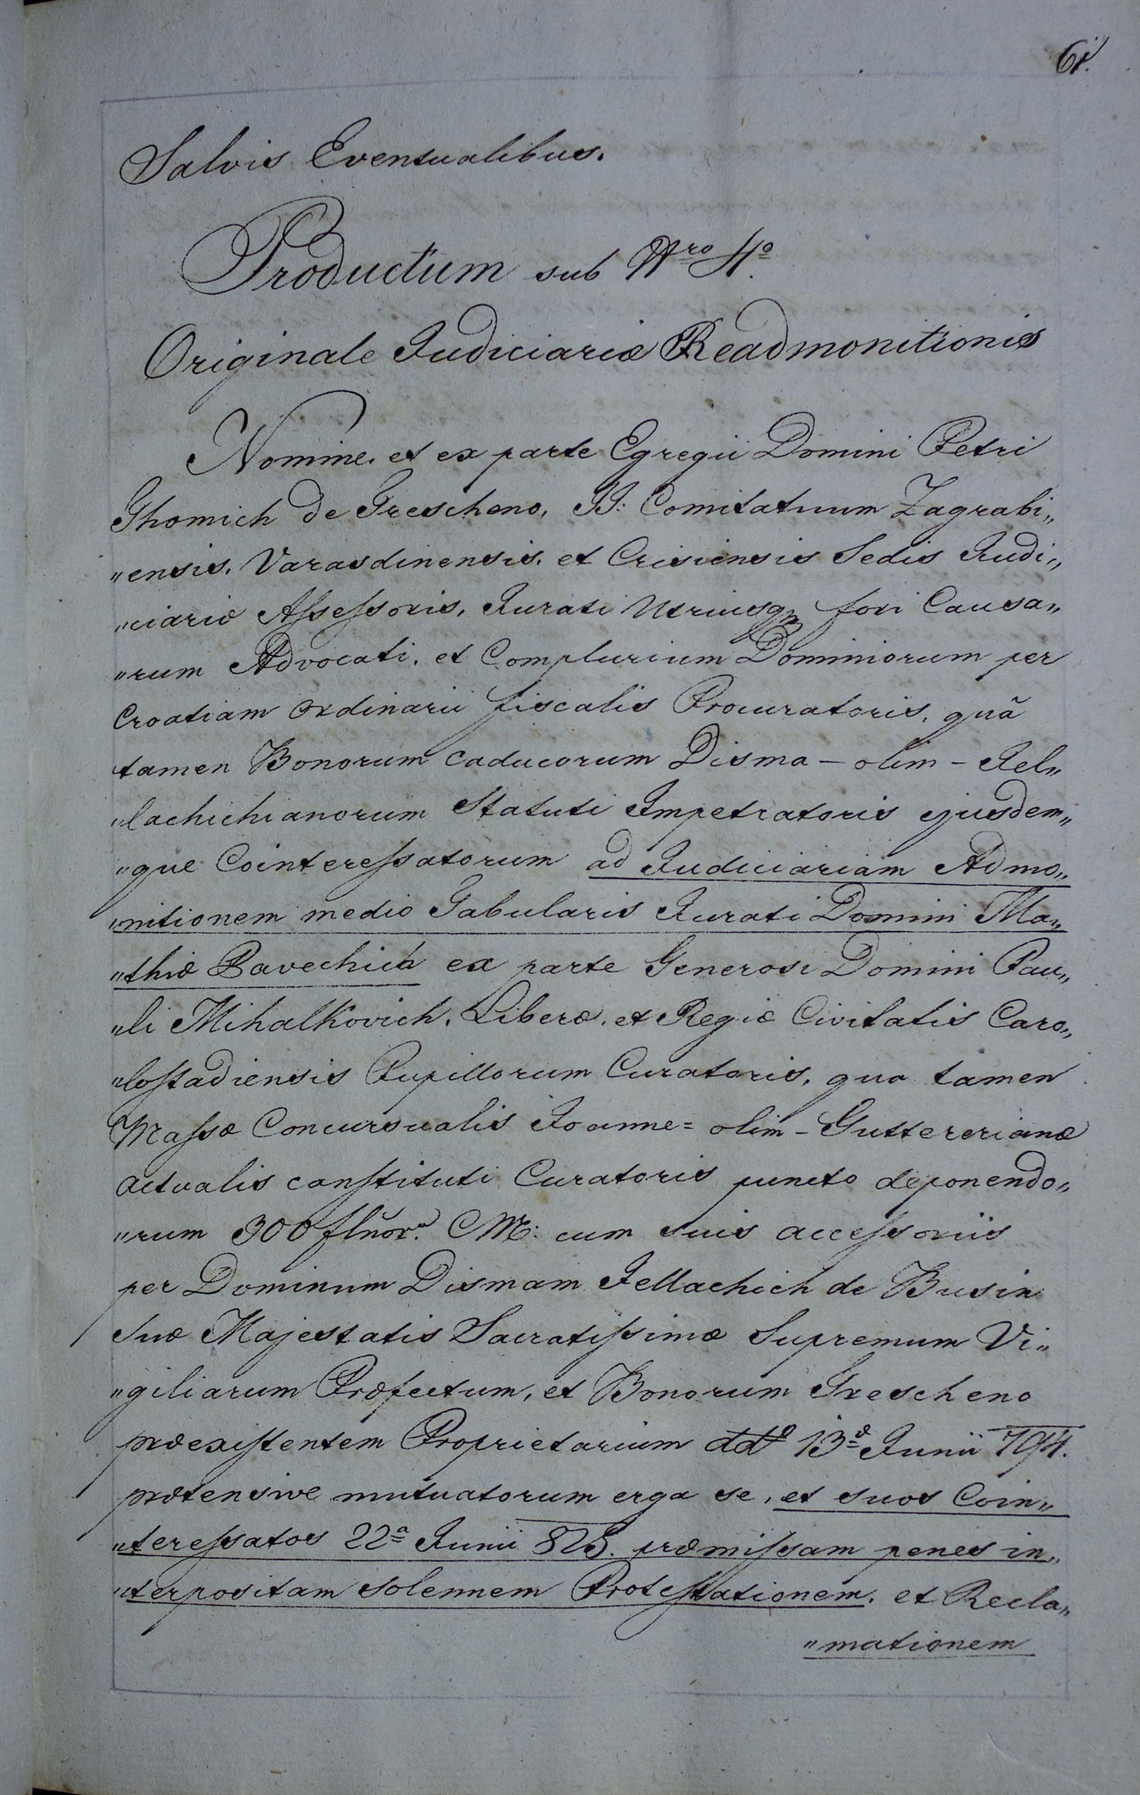 61.
Salvis Eventualibus.
Productum sub Nro 4o
Originale Judiciariæ Readmonitionis
Nomine, et ex parte Egregii Domini Petri
Thomich de Grescheno, JJ: Comitatuum Zagrabi„
„ensis, Varasdinensis, et Crisiensis Sedis Judi„
„ciariæ Assessoris, Jurati Utriusqz fori Causa„
„rum Advocati, et Complurium Dominiorum per
Croatiam Ordinarii fiscalis Procuratoris, quā
tamen Bonorum caducorum Disma – olim – Jel„
„lachichianorum Statuti Impetratoris ejusdem„
„que Cointeressatorum ad Judiciariam Admo„
„nitionem medio Tabularis Jurati Domini Ma„
„thiæ Pavechich ex parte Generosi Domini Pau„
„li Mihalkovich, Liberæ, et Regiæ Civitatis Caro„
„lostadiensis Pupillorum Curatoris, qua tamen
Massæ Concursualis Joanne= olim – Guttererianæ
actualis constituti Curatoris puncto deponendo„
„rum 300 flnor. CM: cum suis accessoriis
per Dominum Dismam Jellachich de Busin
Suæ Majestatis Sacratissimæ Supremum Vi„
„giliarum Præfectum, et Bonorum Grescheno
præexistentem Proprietarium ddo 13a Junii 794.
prætensive mutuatorum erga se, et suos Coin„
„teressatos 22a Junii 825. præmissam penes in„
„terpositam solennem Protestationem, et Recla„
„mationem